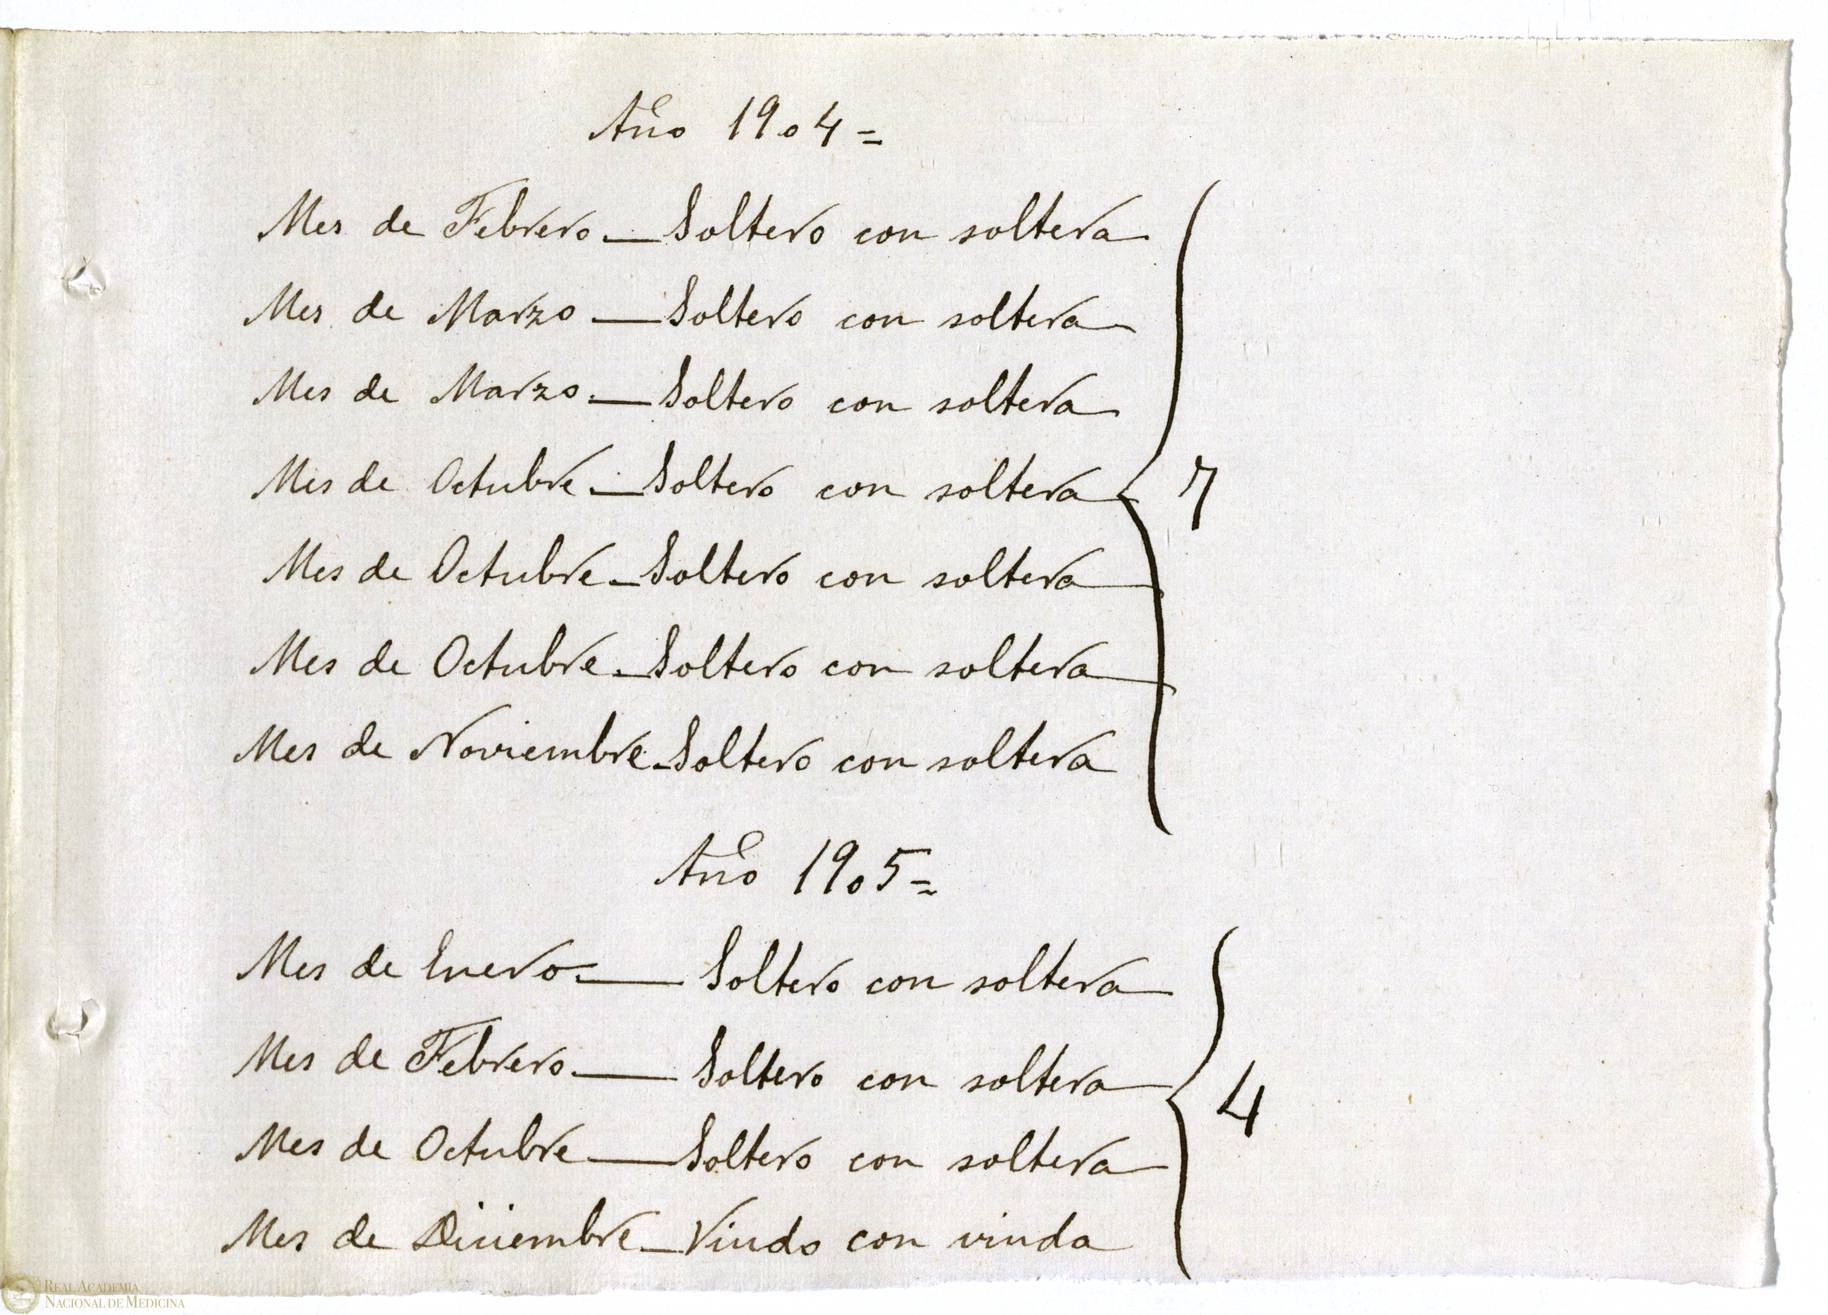 Año 1904=
Mes de Febrero — Soltero con soltera
Mes de Marzo — Soltero con soltera
Mes de Marzo — Soltero con soltera
Mes de Octubre — Soltero con soltera
7
Mes de Octubre — Soltero con soltera
Mes de Octubre — Soltero con soltera
Mes de Noviembre — Soltero con soltera
Año 1905=
Mes de Enero — Soltero con soltera
Mes de Febrero — Soltero con soltera
4
Mes de Octubre — Soltero con soltera
Mes de Diciembre — Viudo con viuda
REAL ACADEMIA
NACIONAL DE MEDICINA